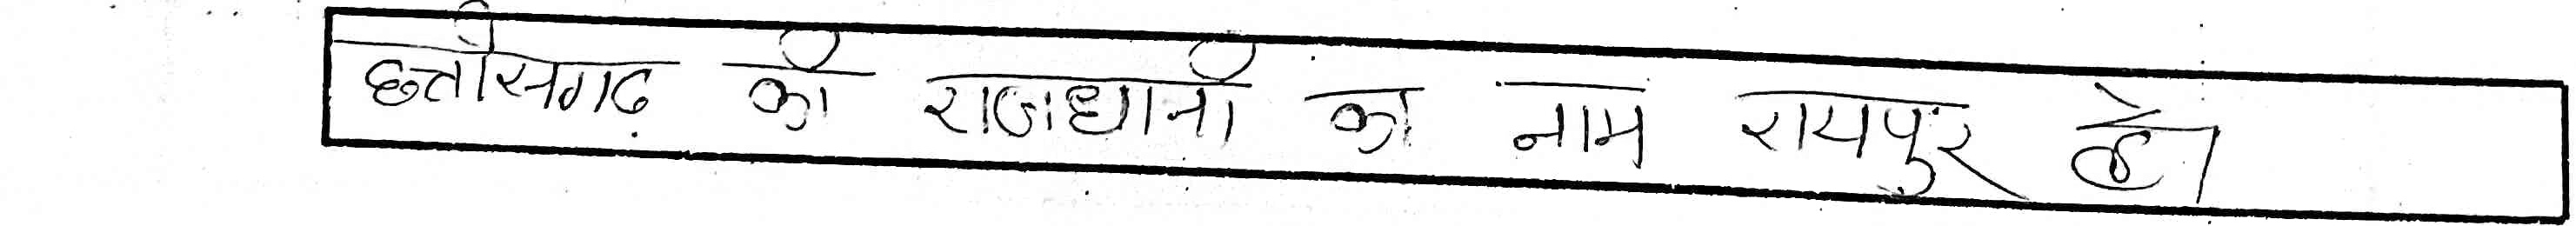 छत्तीसगढ़ की राजधानी का नाम रायपुर है।